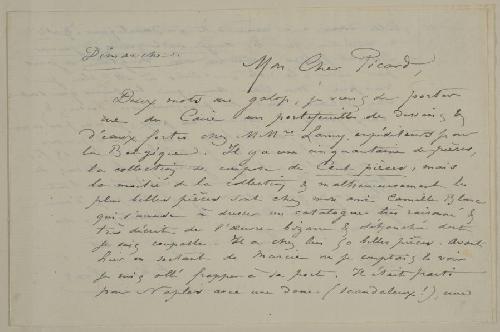 Dimanche
Mon Cher Picard,
Deux mots au galop, je viens de porter
rue du Caire un portefeuille de dessins &
d'eaux fortes chez MMrs Lamy, expéditeurs pour
la Belgique. Il y a une cinquantaine de pièces,
la collection se compose de Cent pièces; mais
la moitié de la collection & malheureusement les
plus belles pièces sont chez mon ami Camille Blanc
qui s'amuse à dresser un catalogue très raisonné &
très discret de l'œuvre bizarre & dont
je suis coupable. Il a chez lui 50 belles pièces. Avant
hier en sortant de je comptais le voir
je suis allé frapper à sa porte. Il était parti
pour Naples avec une Dame (scandaleux!), une